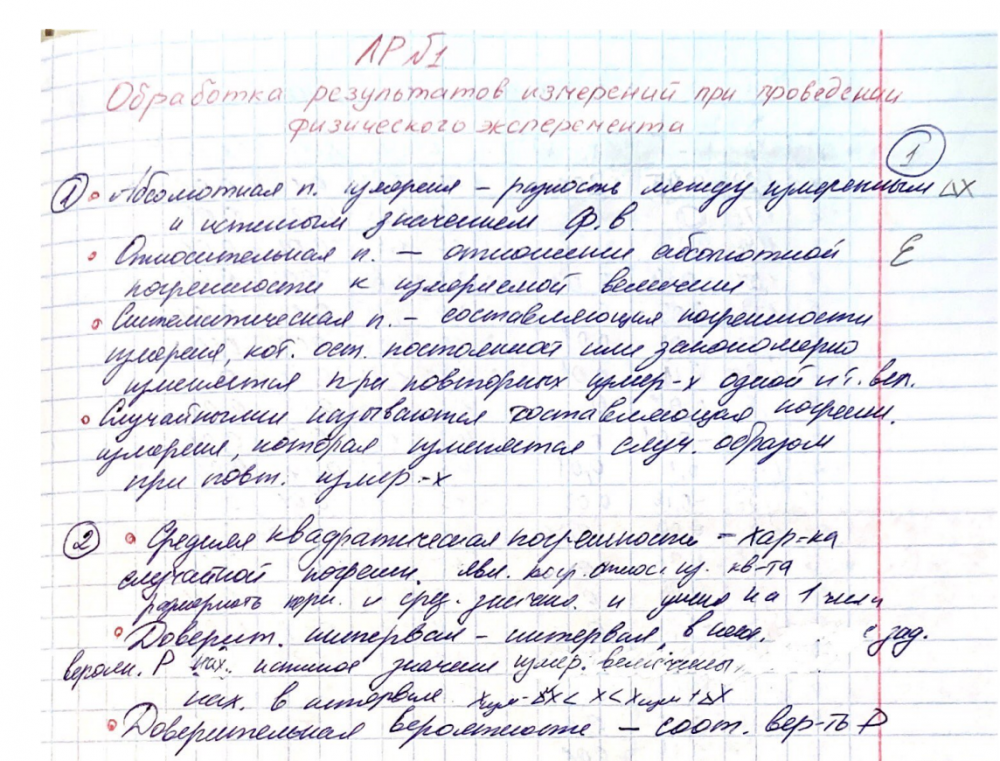 ЛР №1
Обработка результатов измерений при проведении
физического эксперемента
1
1 • Абсолютная п. измерения – разность между измеренным ΔX
и истиным значением ф.в.
• Относительная п. – отношении абсолютной E
погрешности к измеряемой величини
• Систематическая п. – составляющая погрешности
измерения, кот. ост. постоянной или закономерно
изменяется при повторных измер-х одной и т. вел.
• Случайными называются составляющая погрешн.
измерения, которая изменяется случ. образом
при повт. измер-х
2 • Средняя квадратическая погрешность – хар-ка
случайной погрешн. явл. кв-та
и сред. и на 1 числа
• Доверит. интервал – интервал, в с зад.
вероятн. P нах. истиное значени измер. величины,
нах. в интервале
• Доверительная вероятность – соот. вер-ть P